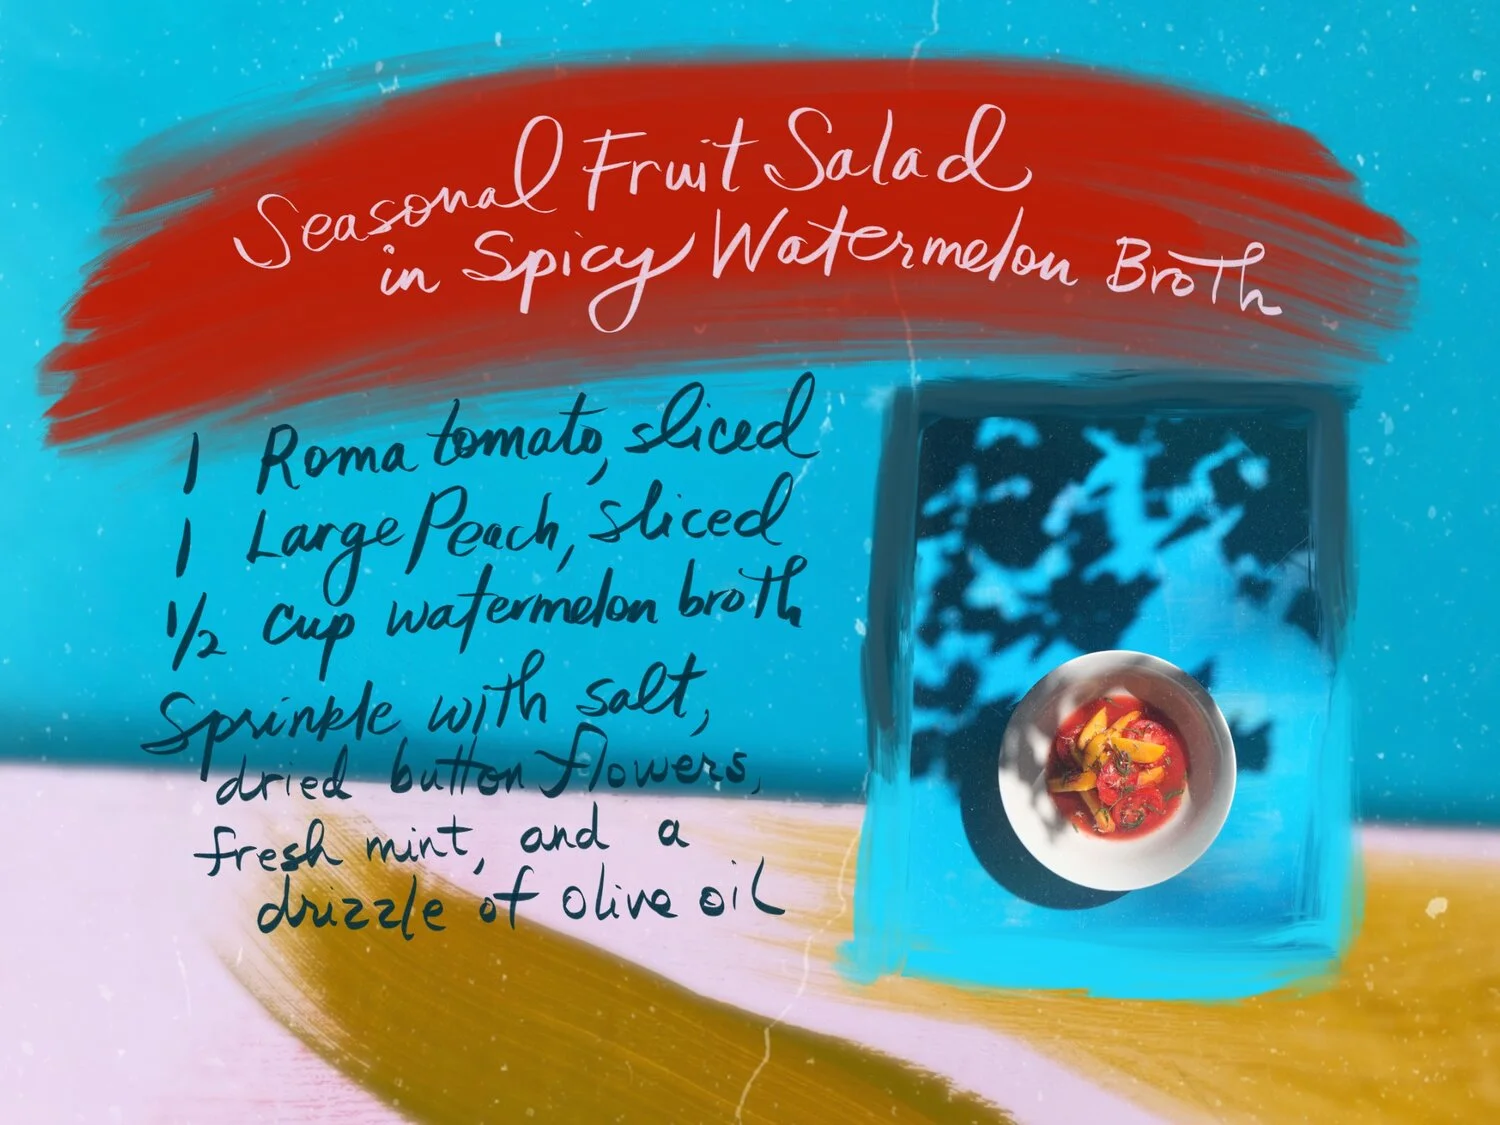 Seasonal Fruit Salad
in Spicy Watermelon Broth
1 Roma tomato, sliced
1 Large Peach, sliced
1/2 cup watermelon broth
Sprinkle with salt,
dried button flowers,
fresh mint, and a
drizzle of olive oil